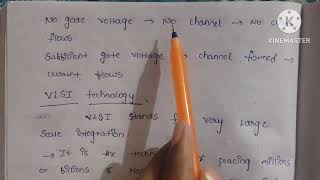 No gate voltage → No channel → No c
flows
Sufficient gate voltage → channel formed →
current flows
VLSI technology
VLSI stands f very large
Scale integration
→ It is the techn of placing millions
or billions
KINEMASTER